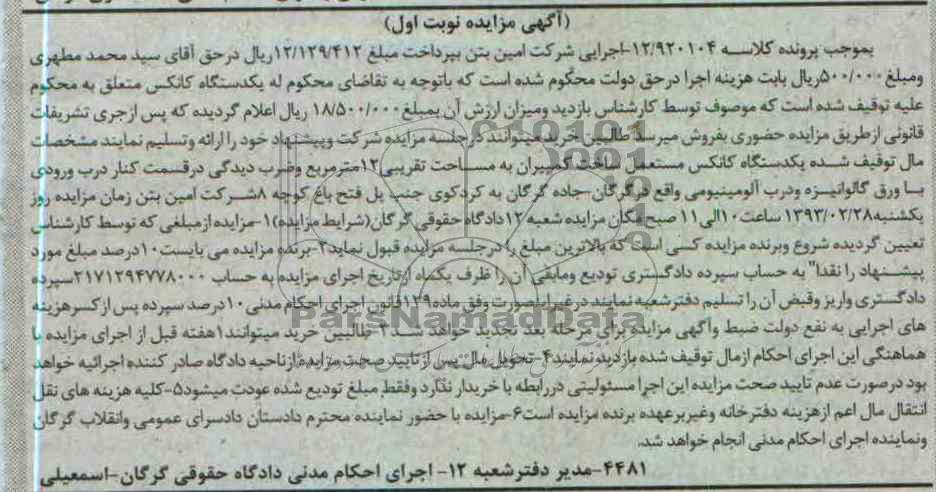 (آگهی مزایده نوبت اول)
بموجب پرونده کلاسه ۱۲/۹۲۰۱۰۴-اجرایی شرکت امین بتن بپرداخت مبلغ ۱۲/۱۲۹/۴۱۲ریال درحق آقای سید محمد مطهری
ومبلغ ۵۰۰/۰۰۰ریال بابت هزینه اجرا درحق دولت محکوم شده است که باتوجه به تقاضای محکوم له یکدستگاه کانکس متعلق به محکوم
علیه توقیف شده است که موصوف توسط کارشناس بازدید ومیزان ارزش آن بمبلغ ۱۸/۵۰۰/۰۰۰ ریال اعلام گردیده که پس ازجری تشریفات
قانونی ازطریق مزایده حضوری بفروش میرسد طالبین خرید میتوانند درجلسه مزایده شرکت وپیشنهاد خود را ارائه وتسلیم نمایند مشخصات
مال توقیف شده یکدستگاه کانکس مستعمل ساخت کمپیران به مساحت تقریبی۱۲مترمربع وضرب دیدگی درقسمت کنار درب ورودی
با ورق گالوانیزه ودرب آلومینیومی واقع درگرگان-جاده گرگان به کردکوی جنب پل فتح باغ کوچه ۸شرکت امین بتن زمان مزایده روز
یکشنبه۱۳۹۳/۰۲/۲۸ ساعت۱۰الی۱۱ صبح مکان مزایده شعبه ۱۲دادگاه حقوقی گرگان(شرایط مزایده)۱-مزایده ازمبلغی که توسط کارشناس
تعیین گردیده شروع وبرنده مزایده کسی است که بالاترین مبلغ را درجلسه مزایده قبول نماید۲-برنده مزایده می بایست۱۰درصد مبلغ مورد
پیشنهاد را نقدا" به حساب سپرده دادگستری تودیع ومابقی آن را ظرف یکماه ازتاریخ اجرای مزایده به حساب ۲۱۷۱۲۹۴۷۷۸۰۰۰سپرده
دادگستری واریز وقبض آن را تسلیم دفترشعبه نمایند درغیراینصورت وفق ماده۱۲۹قانون اجرای احکام مدنی ۱۰درصد سپرده پس ازکسرهزینه
های اجرایی به نفع دولت ضبط وآگهی مزایده برای مرحله بعد تجدید خواهد شد۳-طالبین خرید میتوانند۱هفته قبل از اجرای مزایده با
هماهنگی این اجرای احکام ازمال توقیف شده بازدید نمایند۴-تحویل مال پس ازتایید صحت مزایده ازناحیه دادگاه صادر کننده اجرائیه خواهد
بود درصورت عدم تایید صحت مزایده این اجرا مسئولیتی دررابطه با خریدار ندارد وفقط مبلغ تودیع شده عودت میشود۵-کلیه هزینه های نقل
انتقال مال اعم ازهزینه دفترخانه وغیربرعهده برنده مزایده است۶-مزایده با حضور نماینده محترم دادستان دادسرای عمومی وانقلاب گرگان
ونماینده اجرای احکام مدنی انجام خواهد شد.
۴۴۸۱-مدیر دفترشعبه ۱۲- اجرای احکام مدنی دادگاه حقوقی گرگان-اسمعیلی
ParsNamadData